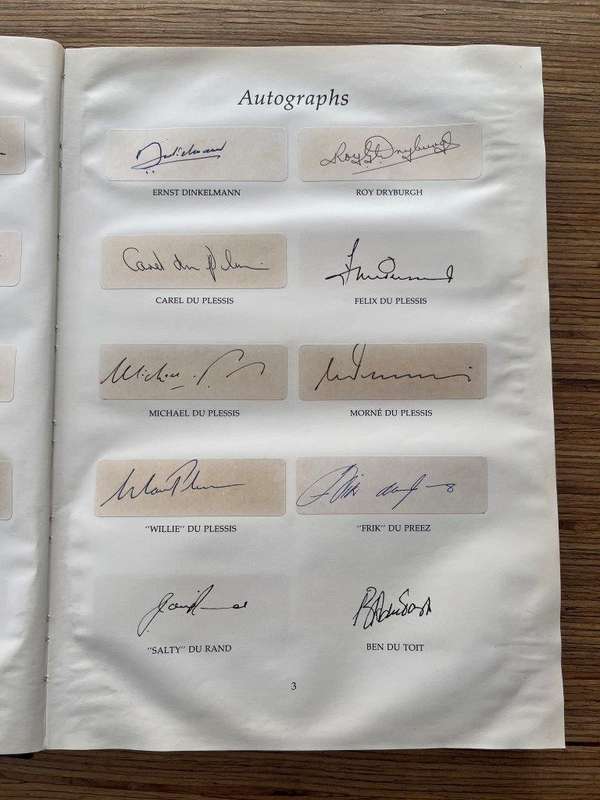 Autographs
ERNST DINKELMANN
Roy Dryburgh
ROY DRYBURGH
Carel du Plessis
CAREL DU PLESSIS
FELIX DU PLESSIS
MICHAEL DU PLESSIS
MORNÉ DU PLESSIS
"WILLIE" DU PLESSIS
"FRIK" DU PREEZ
"SALTY" DU RAND
BEN DU TOIT
3